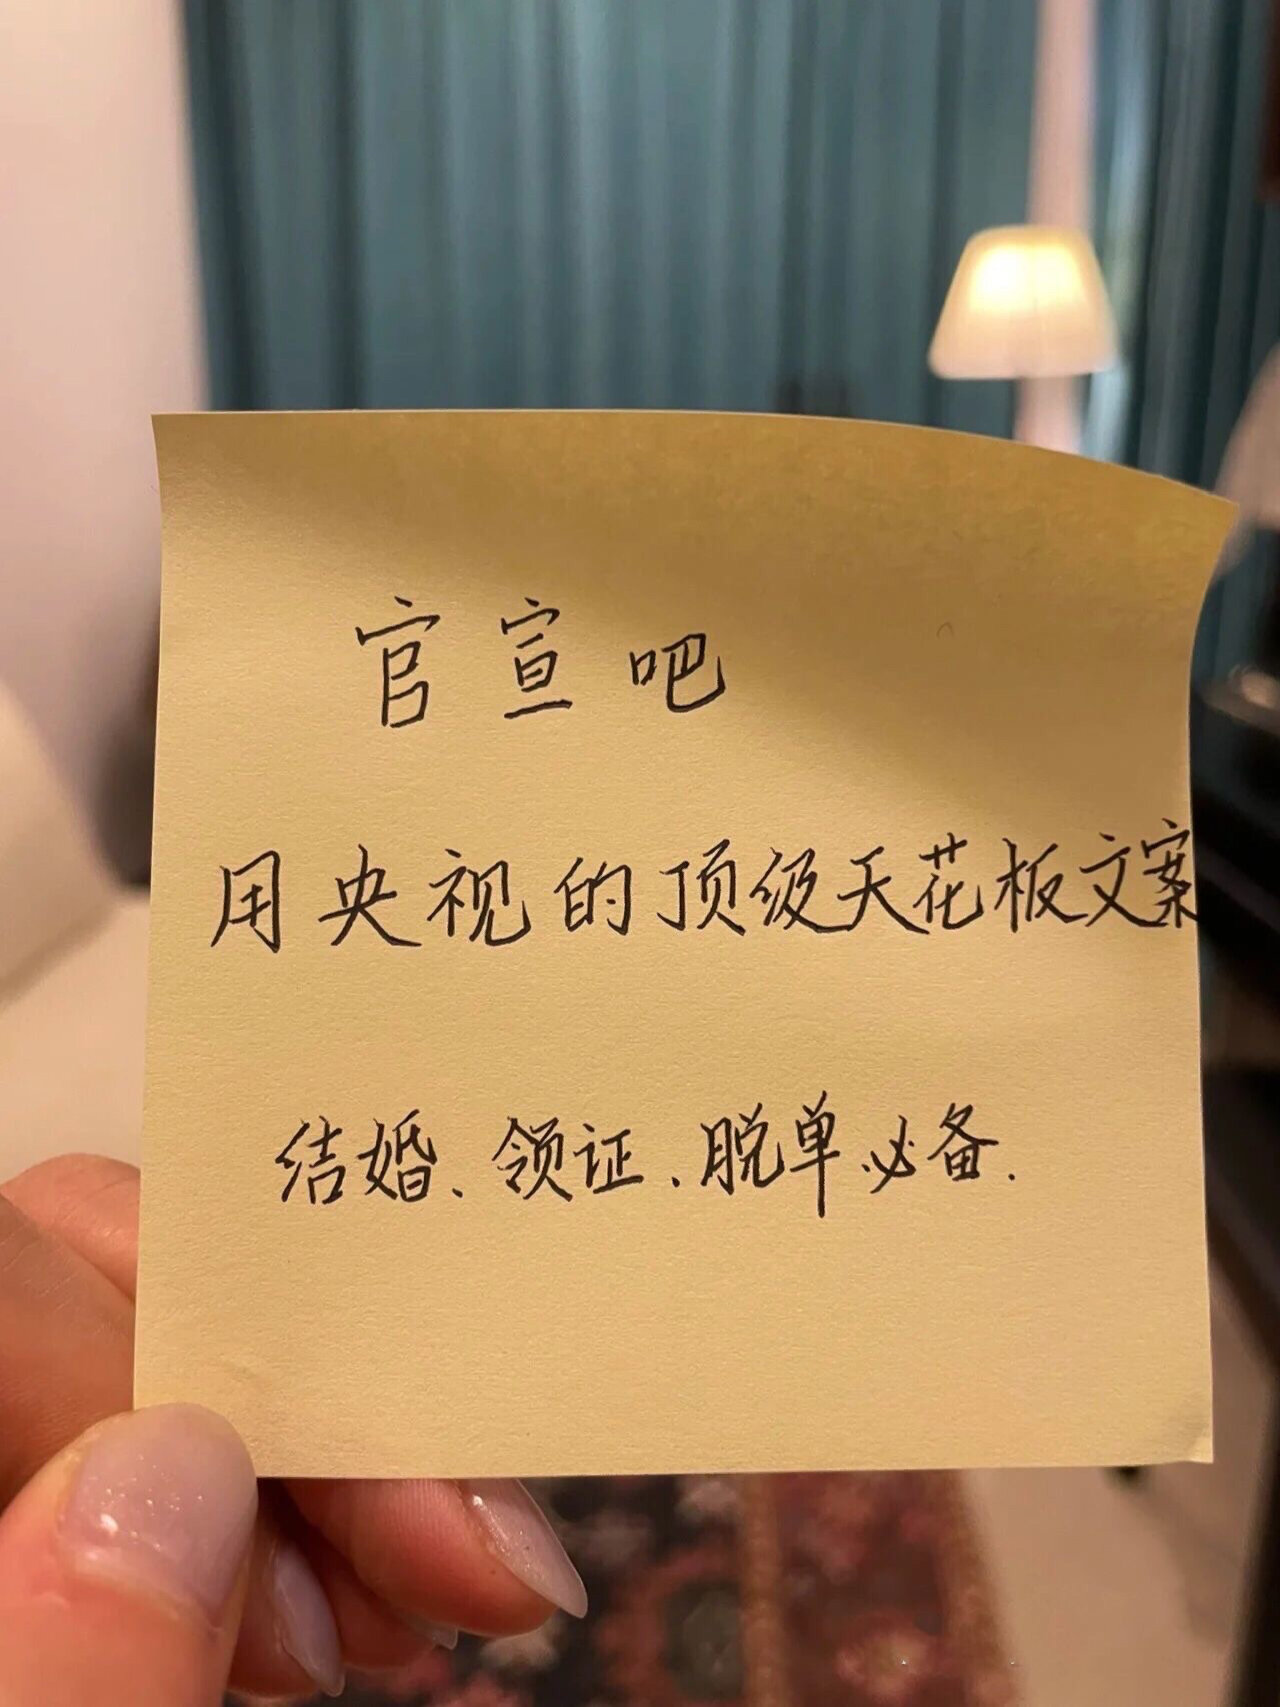 官宣吧
用央视的顶级天花板文案
结婚、领证、脱单必备.